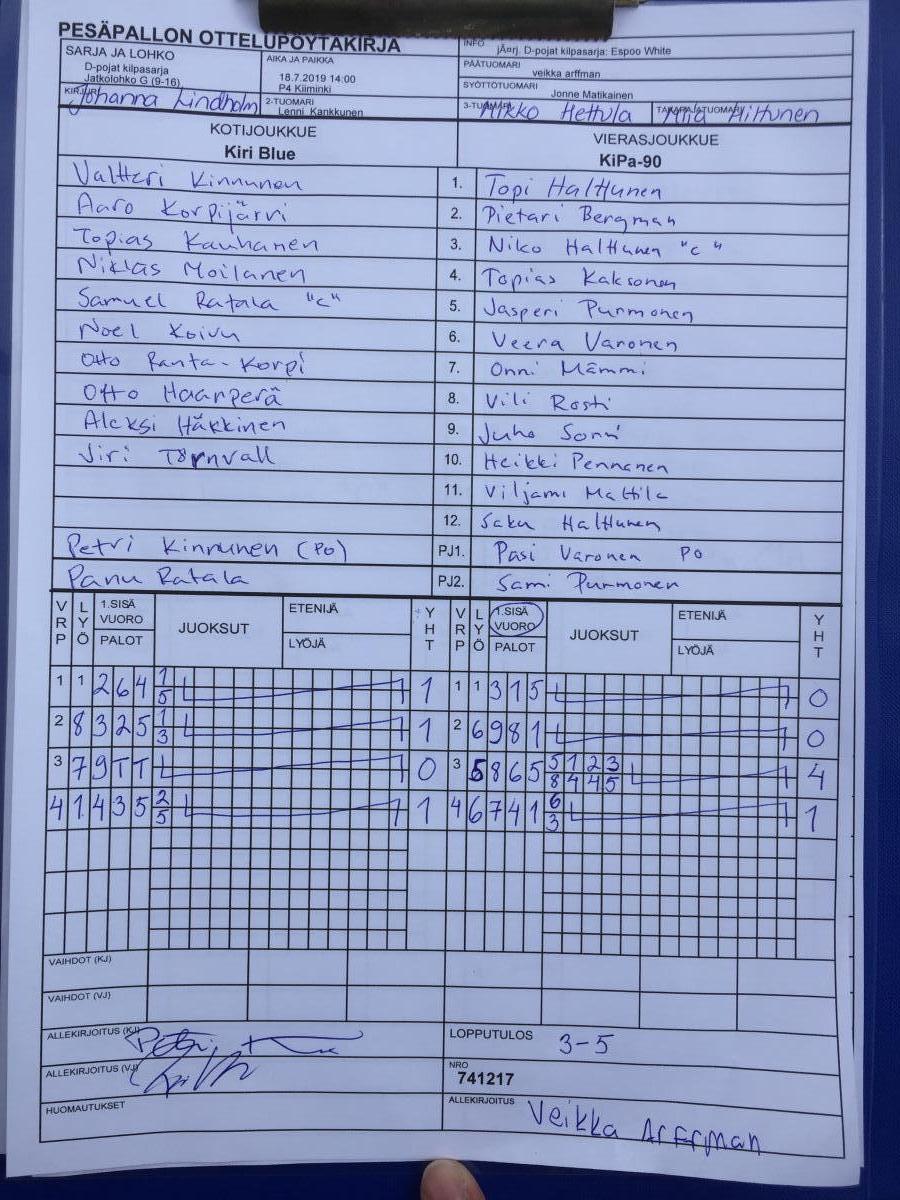 PESÄPALLON OTTELUPÖYTÄKIRJA
SARJA JA LOHKO
D-pojat kilpasarja
Jatkolohko G (9-16)
AIKA JA PAIKKA
18.7.2019 14:00
P4 Kiiminki
INFO
jÃ¤rj. D-pojat kilpasarja: Espoo White
PÄÄTUOMARI
veikka arffman
SYÖTTÖTUOMARI
Jonne Matikainen
KIRJURI
Johanna Lindholm
2-TUOMARI
Lenni Kankkunen
3-TUOMARI
Mikko Hettula
TAKARAJATUOMARI
Miia Hiltunen
KOTIJOUKKUE
Kiri Blue
VIERASJOUKKUE
KiPa-90
Valtteri Kinnunen 1. Topi Halttunen
Aaro Korpijärvi 2. Pietari Bergman
Topias Kauhanen 3. Niko Halttunen "c"
Niklas Moilanen 4. Topias Kaksonen
Samuel Ratala "c" 5. Jasperi Purmonen
Noel Koivu 6. Veera Varonen
Otto Ranta-Korpi 7. Onni Mämmi
Otto Haarperä 8. Vili Rosti
Aleksi Häkkinen 9. Juho Sorri
Jiri Törnvall 10. Heikki Pennanen
11. Viljami Mattila
12. Saku Halttunen
Petri Kinnunen (PO) PJ1. Pasi Varonen PO
Panu Ratala PJ2. Sami Purmonen
VRP LYÖ 1.SISÄ VUORO PALOT JUOKSUT ETENIJÄ LYÖJÄ YHT VRP LYÖ 1.SISÄ VUORO PALOT JUOKSUT ETENIJÄ LYÖJÄ YHT
1 1 2 6 4 1/5 1 1 1 3 1 5 0
2 8 3 2 5 1/3 1 2 6 9 8 1 0
3 7 9 T T 0 3 5 8 6 5 5/8 1/4 2/4 3/5 4
4 1 4 3 5 2/5 1 4 6 7 4 1 6/3 1
VAIHDOT (KJ)
VAIHDOT (VJ)
ALLEKIRJOITUS (KJ)
LOPPUTULOS 3-5
ALLEKIRJOITUS (VJ)
NRO
741217
HUOMAUTUKSET
ALLEKIRJOITUS Veikka Arffman